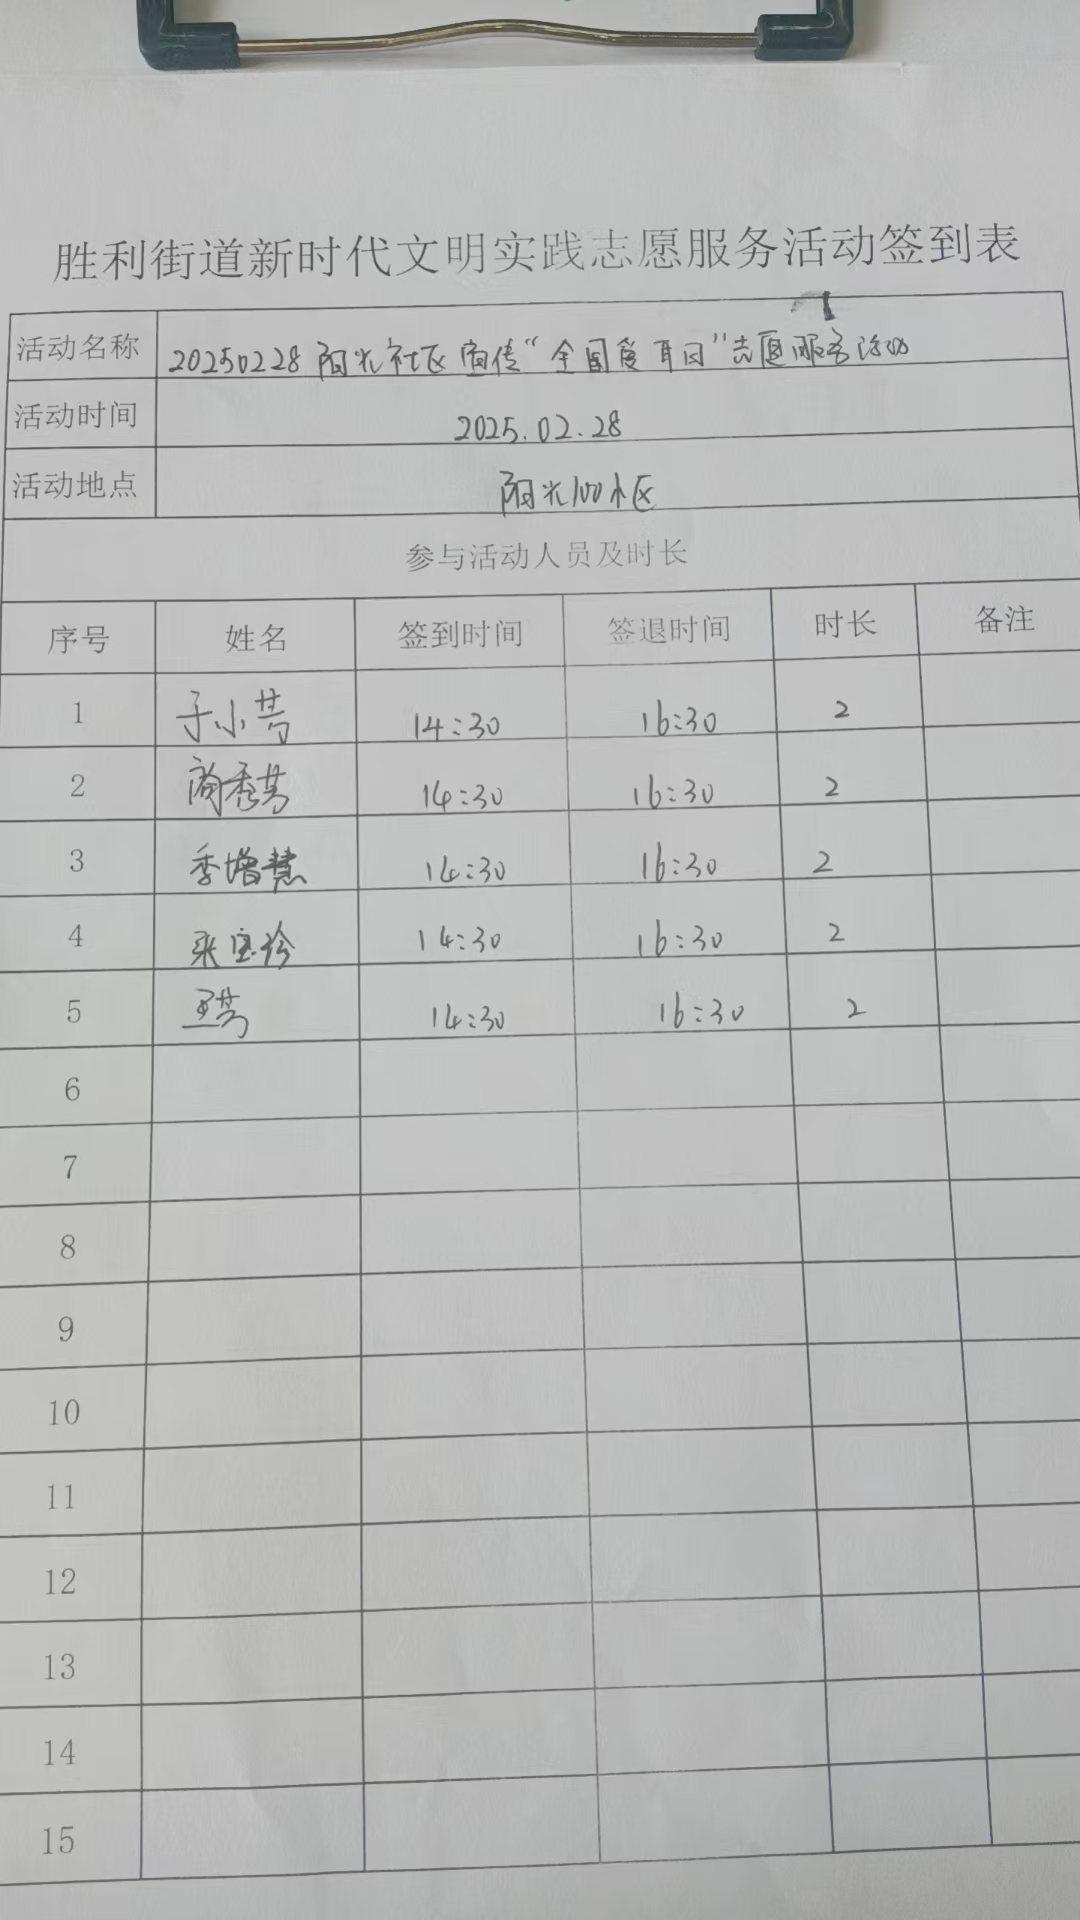 胜利街道新时代文明实践志愿服务活动签到表
活动名称 20250228阳光社区宣传“全国爱耳日”志愿服务活动
活动时间 2025.02.28
活动地点 阳光100小区
参与活动人员及时长
序号 姓名 签到时间 签退时间 时长 备注
1 于小芳 14:30 16:30 2
2 秀芳 14:30 16:30 2
3 季增慧 14:30 16:30 2
4 宝珍 14:30 16:30 2
5 王芳 14:30 16:30 2
6
7
8
9
10
11
12
13
14
15